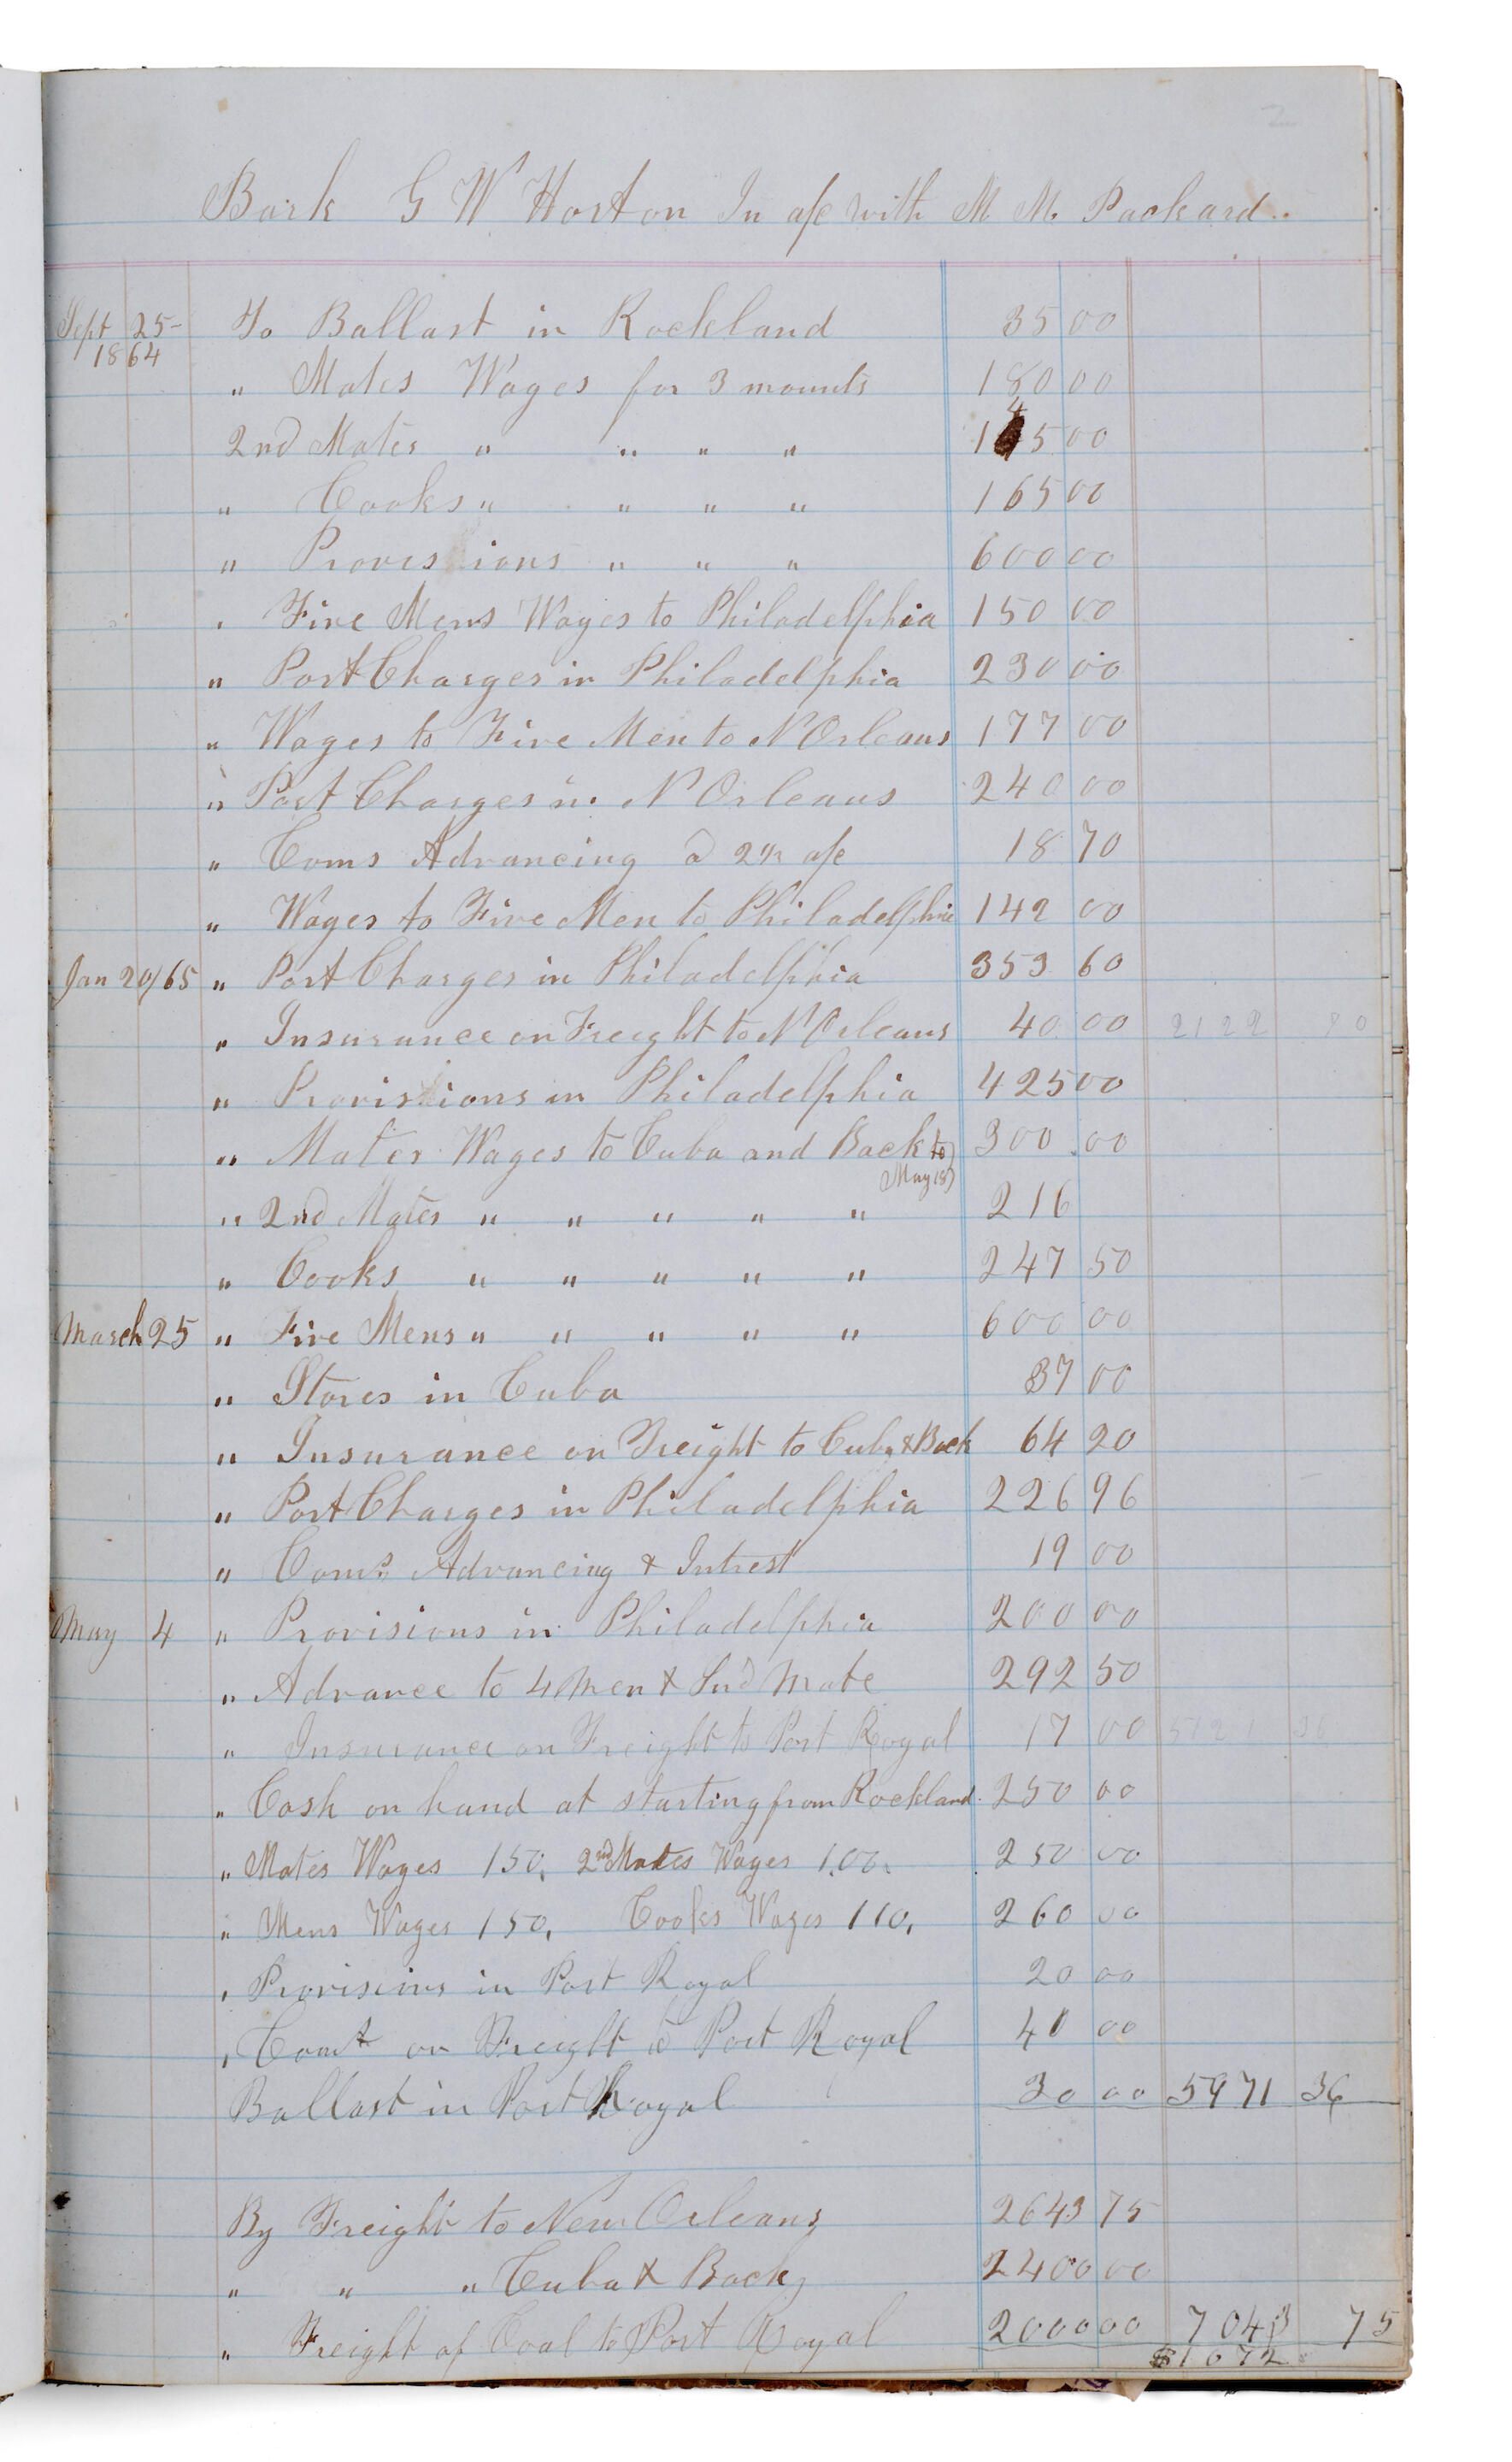 2
Bark G W Horton In a/c with M M. Packard..
Sept 25- To Ballast in Rockland 35 00
1864
" Mates Wages for 3 mounts 180 00
2nd Mates " " " " 145 00
" Cooks " " " " 165 00
" Provissions " " " 600 00
" Five Mens Wages to Philadelphia 150 00
" Port Charges in Philadelphia 230 00
" Wages to Five Men to N Orleans 177 00
" Port Charges in N Orleans 240 00
" Coms Advancing @ 2½ a/c 18 70
" Wages to Five Men to Philadelphia 142 00
Jan 20/65 " Port Charges in Philadelphia 353 60
" Insurance on Freight to N Orleans 40 00 2122 90
" Provissions in Philadelphia 425 00
" Mates Wages to Cuba and Back to 300 00
May 18)
" 2nd Mates " " " " " 216
" Cooks " " " " " 247 50
March 25 " Five Mens " " " " " 600 00
" Stores in Cuba 37 00
" Insurance on Freight to Cuba & Back 64 20
" Port Charges in Philadelphia 226 96
" Coms Advancing & Intrest 19 00
May 4 " Provisions in Philadelphia 200 00
" Advance to 4 Men & Mate 292 50
" Insurance on Freight to Port Royal 17 00 5121 36
" Cash on hand at starting from Rockland. 250 00
" Mates Wages 150. 2nd Mates Wages 100. 250 00
" Mens Wages 150, Cooks Wages 110, 260 00
" Provisions in Port Royal 20 00
" on Freight to Port Royal 40 00
Ballast in Port Royal 30 00 5971 36
By Freight to New Orleans 2643 75
" " " Cuba & Back 2400 00
" Freight of Coal to Port Royal 2000 00 7043 75
$1072